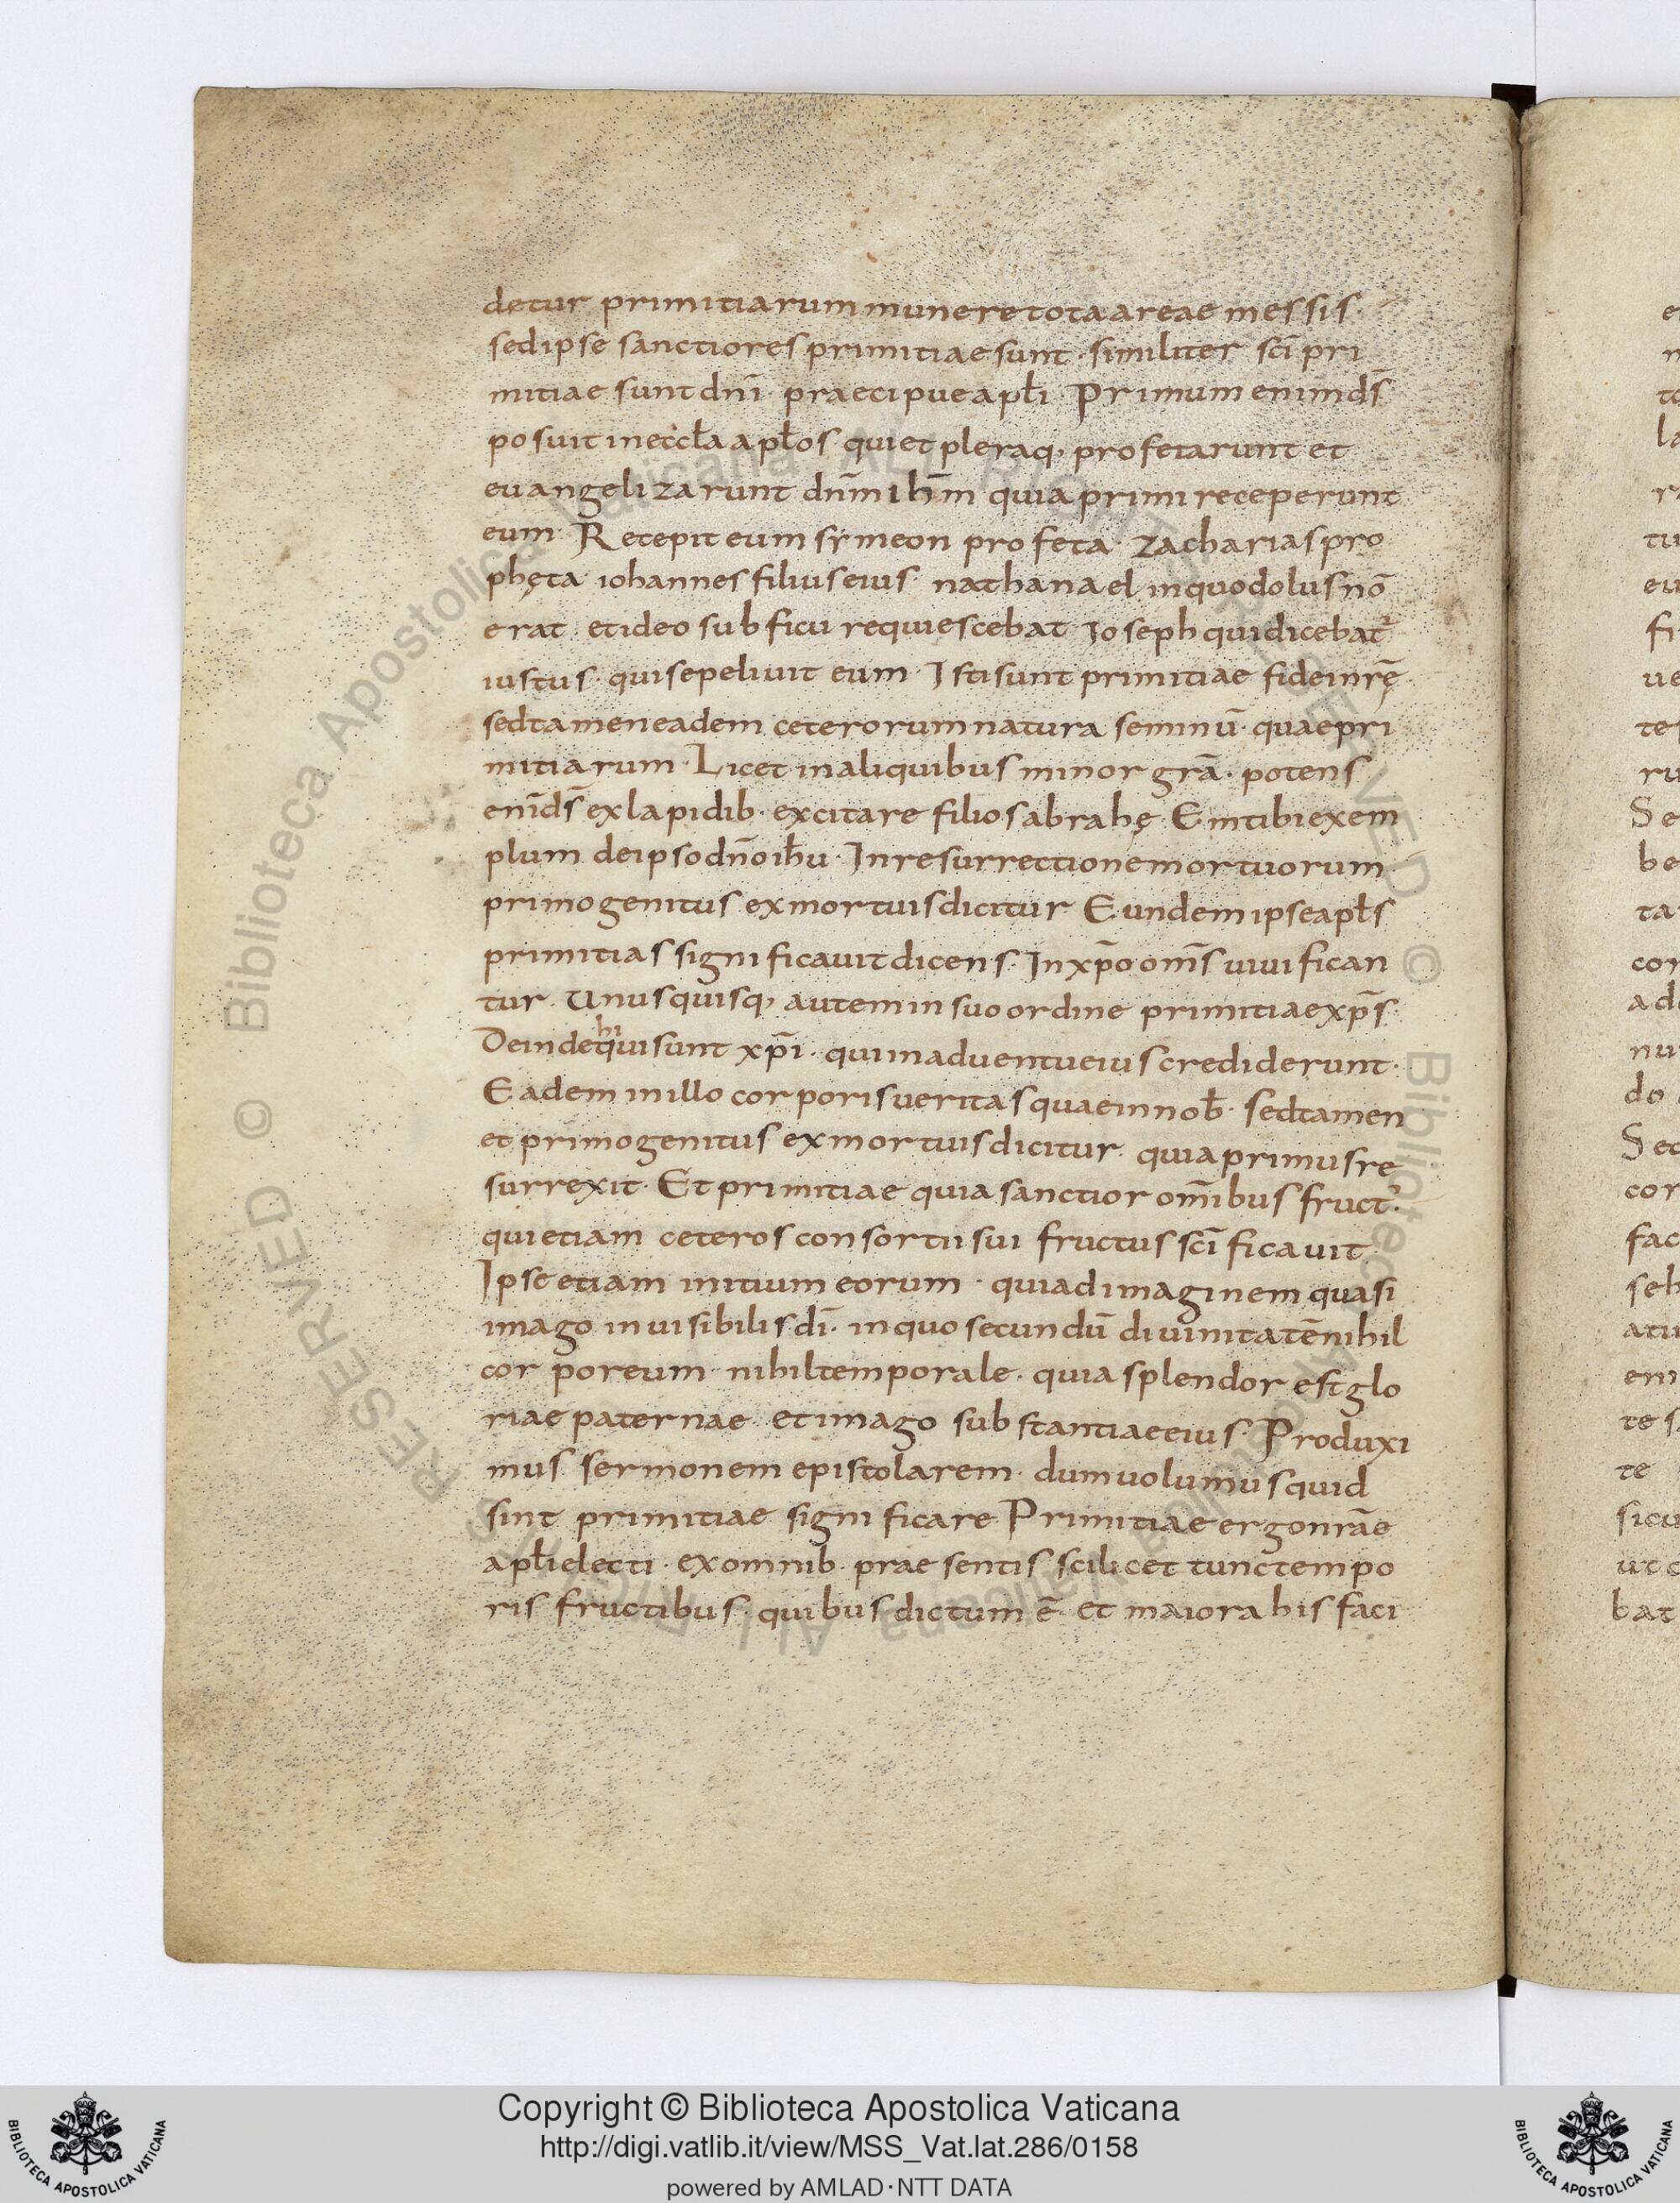 detur primitiarum munere tota areae messis·
sed ipse sanctiores primitiae sunt· similiter sc̄i pri
mitiae sunt dn̄i· praecipue apl̄i· Primum enim ds̄
posuit in eccl̄a apl̄os qui et pleraq; profetarunt et
euangelizarunt dn̄m ih̄m quia primi receperunt
eum· Recepit eum symeon profeta· zacharias pro
phęta· iohannes filius eius· nathanael in quo dolus nō
erat· et ideo sub ficu requiescebat· Joseph qui dicebat᷑
iustus· qui sepeliuit eum· Isti sunt primitiae fidei nr̄ę
sed tamen eadem ceterorum natura seminū· quae pri
mitiarum· Licet in aliquibus minor gr̄a· potens
eni̅ ds̄ ex lapidib· excitare filios abrahę· En tibi exem
plum de ipso dn̄o ih̄u· In resurrectione mortuorum·
primogenitus ex mortuis dicitur· Eundem ipse apl̄s
primitias significauit dicens· In xp̄o om̄s uiuifican
tur· Unusquisq; autem in suo ordine primitiae xp̄s·
Deinde hi qui sunt xp̄i· qui in aduentu eius crediderunt·
Eadem in illo corporis ueritas quae in nob̄· sed tamen
et primogenitus ex mortuis dicitur· quia primus re
surrexit· Et primitiae quia sanctior om̄ibus fruct᷒·
qui etiam ceteros consortii sui fructus sc̄ificauit·
Ipse etiam initium eorum· qui ad imaginem quasi
imago inuisibilis dī· in quo secundū diuinitatē nihil
corporeum· nihil temporale· quia splendor est glo
riae paternae· et imago substantiae eius· Produxi
mus sermonem epistolarem· dum uolumus quid
sint primitiae significare· Primitiae ergo nr̄ae
apl̄i electi· ex omnib· praesentis scilicet tunc tempo
ris fructibus· quibus dictum ē· et maiora his faci
Copyright © Biblioteca Apostolica Vaticana
http://digi.vatlib.it/view/MSS_Vat.lat.286/0158
powered by AMLAD·NTT DATA